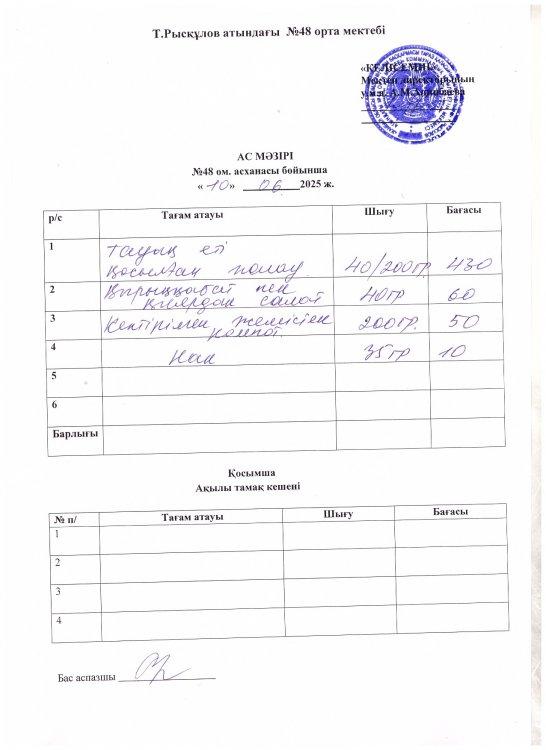 Т.Рысқұлов атындағы №48 орта мектебі
«КЕЛІСЕМІН»
Мектеп директорының
у.м.а.
АС МӘЗІРІ
№48 ом. асханасы бойынша
« 10 » 06 2025 ж.
р/с Тағам атауы Шығу Бағасы
1 Тауық еті
қосылған палау 40/200гр 430
2 Қырыққабат пен
қиярдан салат 40гр 60
3 Кептірілген жемістен
компот 200гр. 50
4 Нан 35гр 10
5
6
Барлығы
Қосымша
Ақылы тамақ кешені
№ п/ Тағам атауы Шығу Бағасы
1
2
3
4
Бас аспазшы